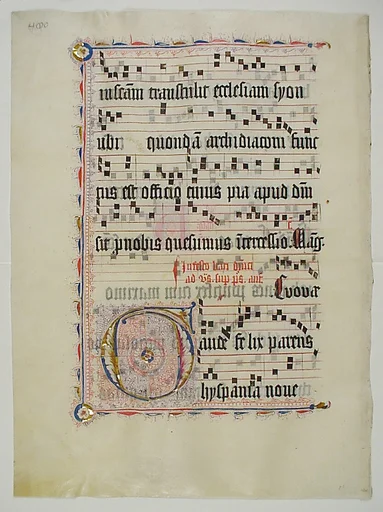 iuscām transtulit ecclesiam syon
ubi quondā archidiaconi func
tus est officio cuius pia apud dm̄
sit p nobis quesumus ītercessio. Mag̅.
In festo
ad vs. sup ps. ant.
Euovae
Gaude felix parens
hyspania noue